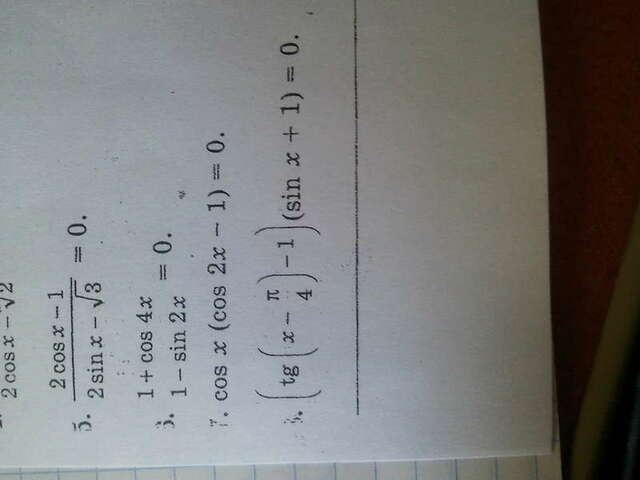 2 cos x − √2
5. (2 cos x − 1)/(2 sin x − √3) = 0.
(1 + cos 4x)/(1 − sin 2x) = 0.
7. cos x (cos 2x − 1) = 0.
(tg (x − π/4) − 1)(sin x + 1) = 0.